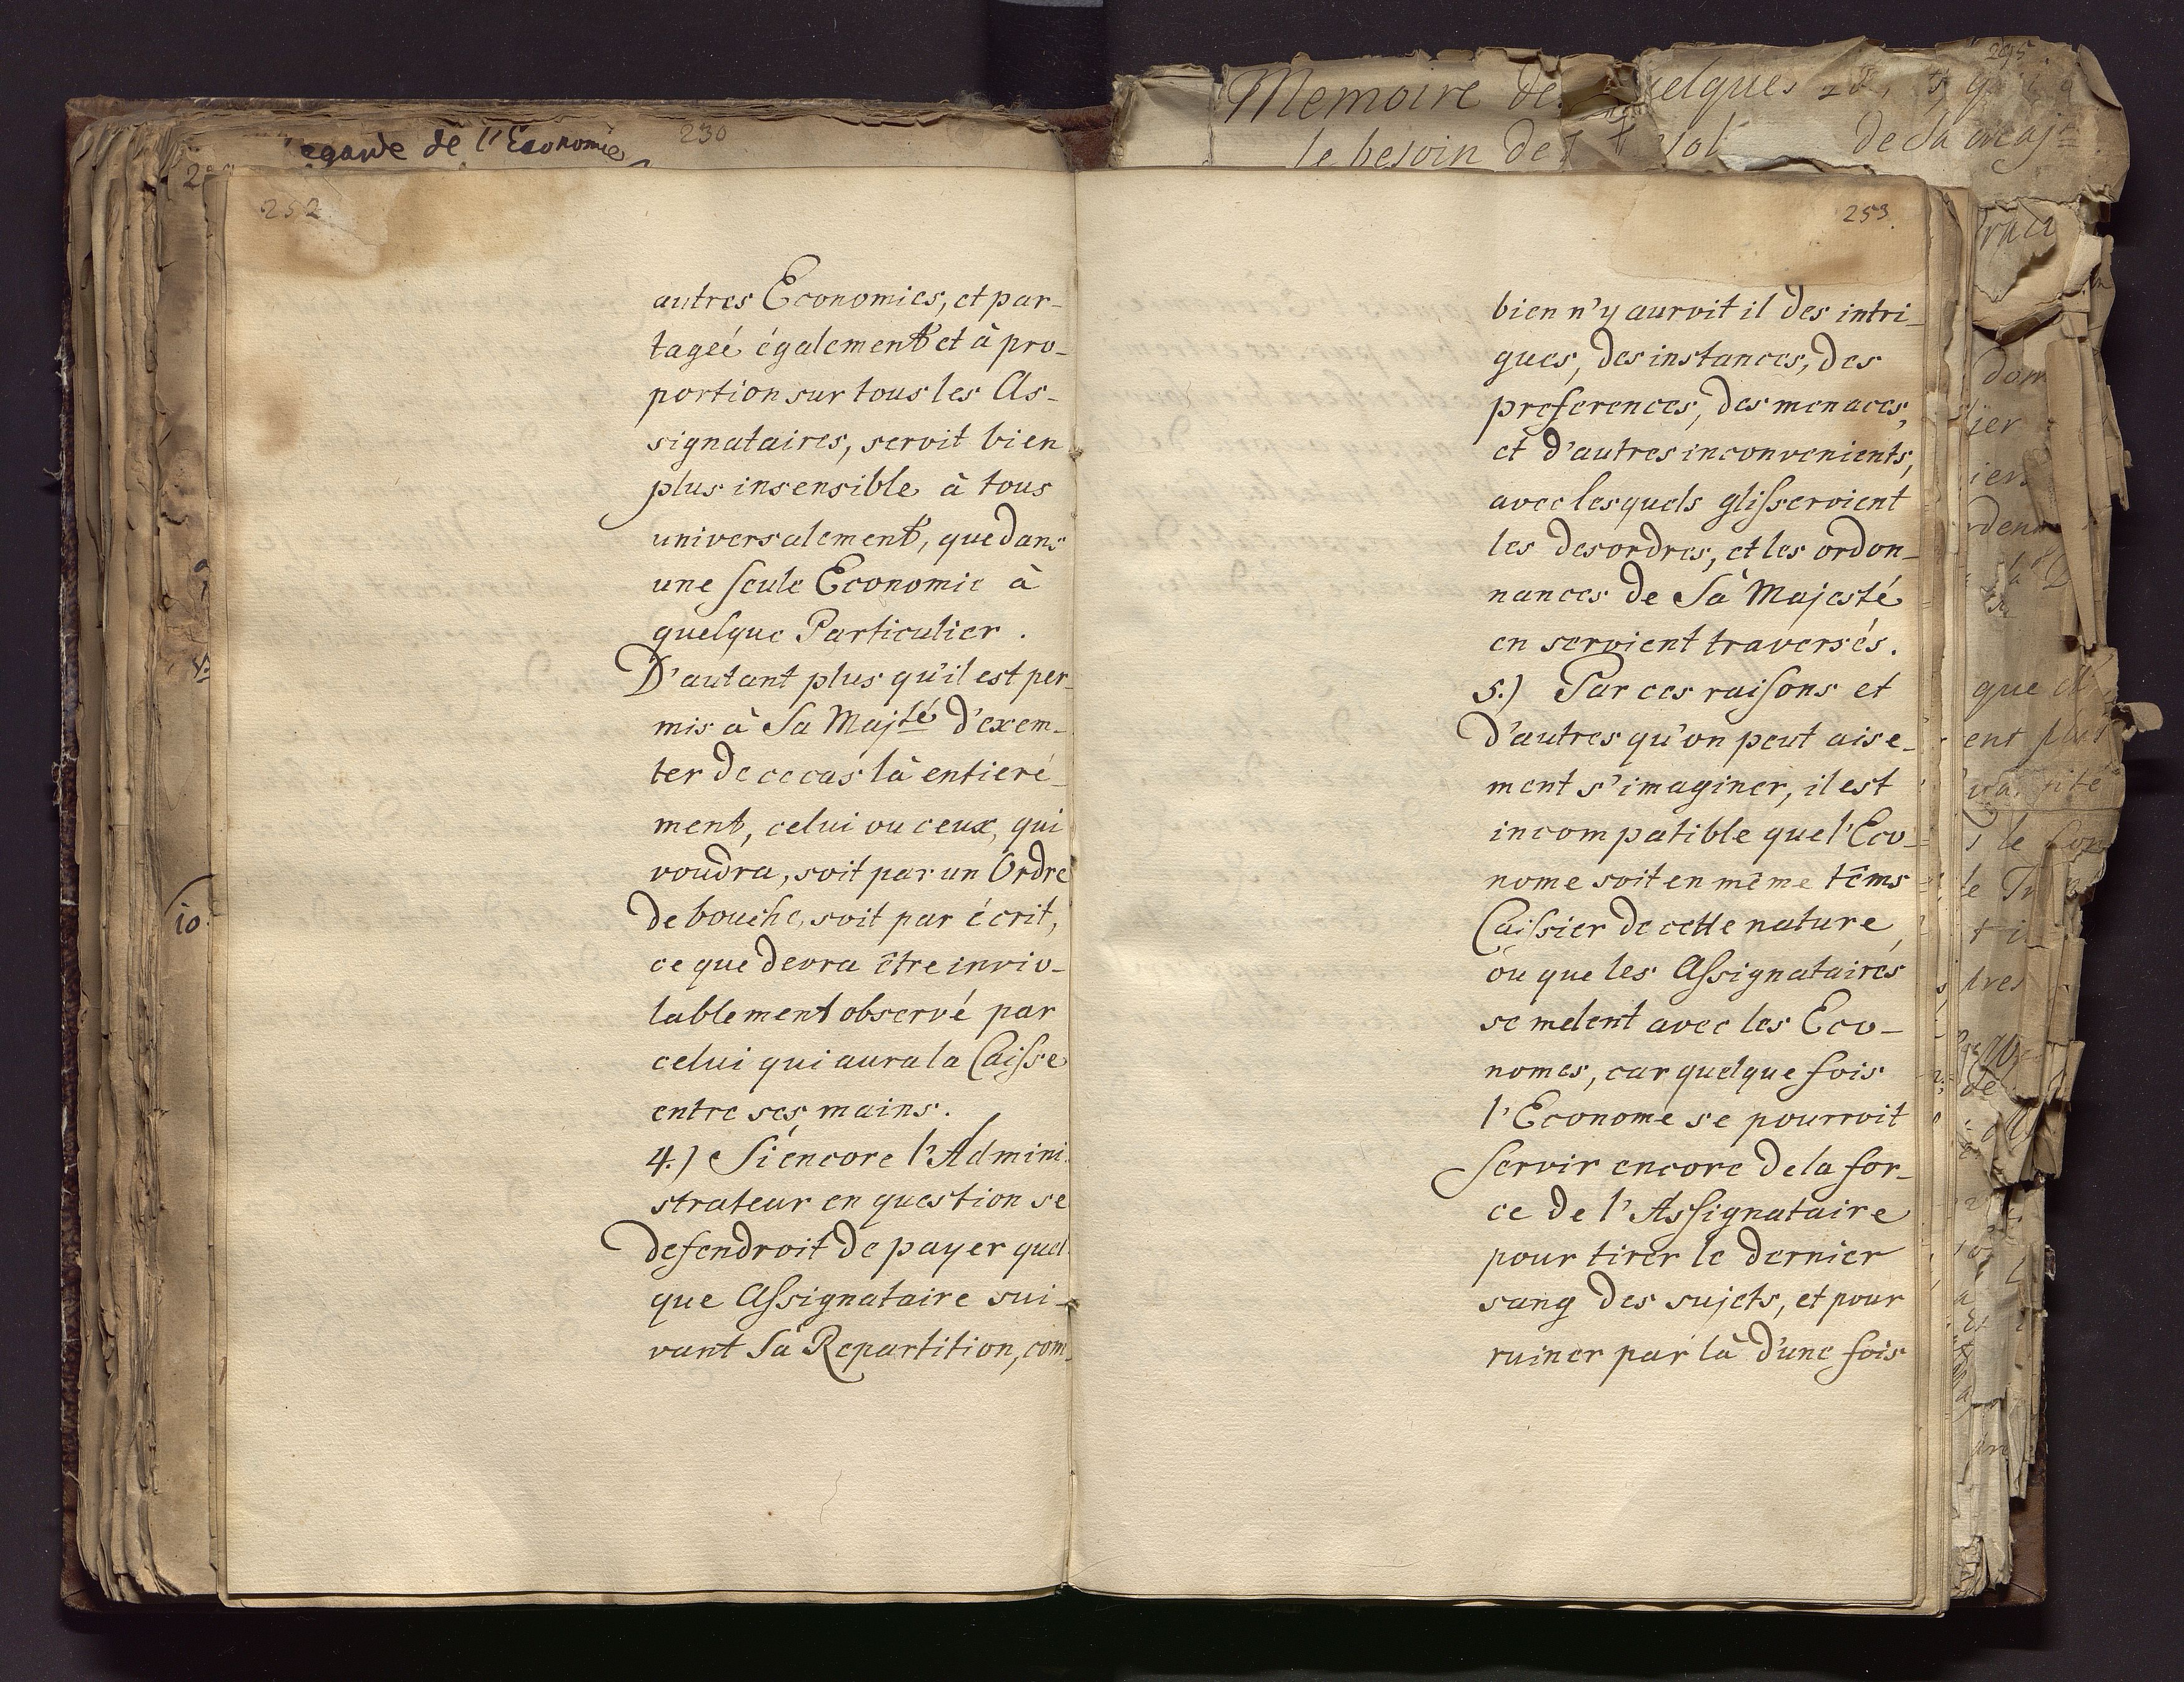 egarde de l'Economie
230
252
autres Economies, et par-
tageé également et à pro-
portion sur tous les As-
signataires, seroit bien
plus insensible à tous
universalement, que dans
une seule Economie à
quelque Particulier.
D'autant plus qu'il est per-
mis à Sa Majté d'exem-
ter de ce cas là entieré-
ment, celui ou ceux, qui
voudra, soit par un Ordre
de bouche, soit par écrit,
ce que devra être invio-
lablement observé par
celui qui aura la Caisse
entre ses mains.
4.) Si encore l'Admini-
strateur en question se
defendroit de payer quel-
que Assignataire sui-
vant Sa Repartition, com-
10.
Memoire de quelques
le besoin de
de Sa Majte
295
253.
bien n'y auroit il des intri-
gues, des instances, des
preferences, des menaces,
et d'autres inconvenients,
avec lesquels glisseroient
les desordres, et les ordon-
nances de Sa Majesté
en seroient traversés.
5.) Par ces raisons et
d'autres qu'on peut aise-
ment s'imaginer, il est
incompatible que l'Eco-
nome soit en même têms
Caissier de cette nature,
ou que les Assignataires
se melent avec les Eco-
nomes, car quelque fois
l'Econome se pourroit
servir encore de la for-
ce de l'Assignataire
pour tirer le dernier
sang des sujets, et pour
ruiner par là d'une fois